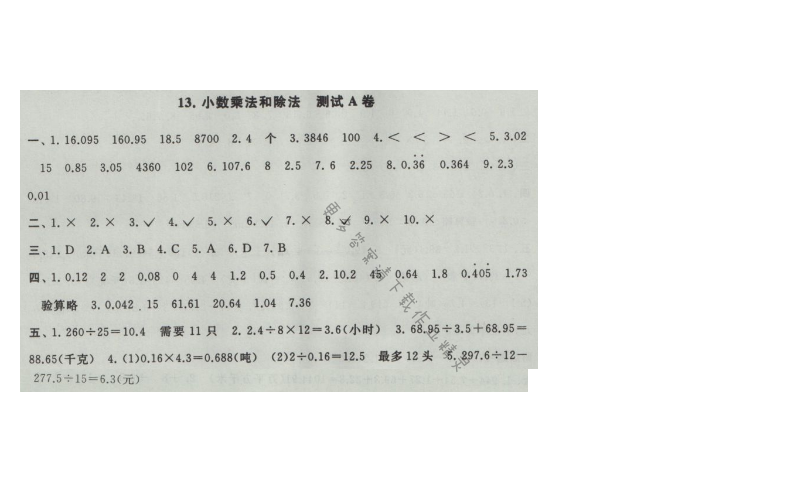 13. 小数乘法和除法 测试 A 卷
一、1. 16.095 160.95 18.5 8700 2. 4 个 3. 3846 100 4. < < > < 5. 3.02
15 0.85 3.05 4360 102 6. 107.6 8 2.5 7. 6 2.25 8. 0.3̇6̇ 0.364 9. 2.3
0.01
二、1. × 2. × 3. √ 4. √ 5. × 6. √ 7. × 8. √ 9. × 10. ×
三、1. D 2. A 3. B 4. C 5. A 6. D 7. B
四、1. 0.12 2 2 0.08 0 4 4 1.2 0.5 0.4 2. 10.2 45 0.64 1.8 0.4̇05̇ 1.73
验算略 3. 0.042 15 61.61 20.64 1.04 7.36
五、1. 260÷25=10.4 需要 11 只 2. 2.4÷8×12=3.6(小时) 3. 68.95÷3.5+68.95=
88.65(千克) 4. (1)0.16×4.3=0.688(吨) (2)2÷0.16=12.5 最多 12 头 5. 297.6÷12-
277.5÷15=6.3(元)
更多答案请下载作业精灵